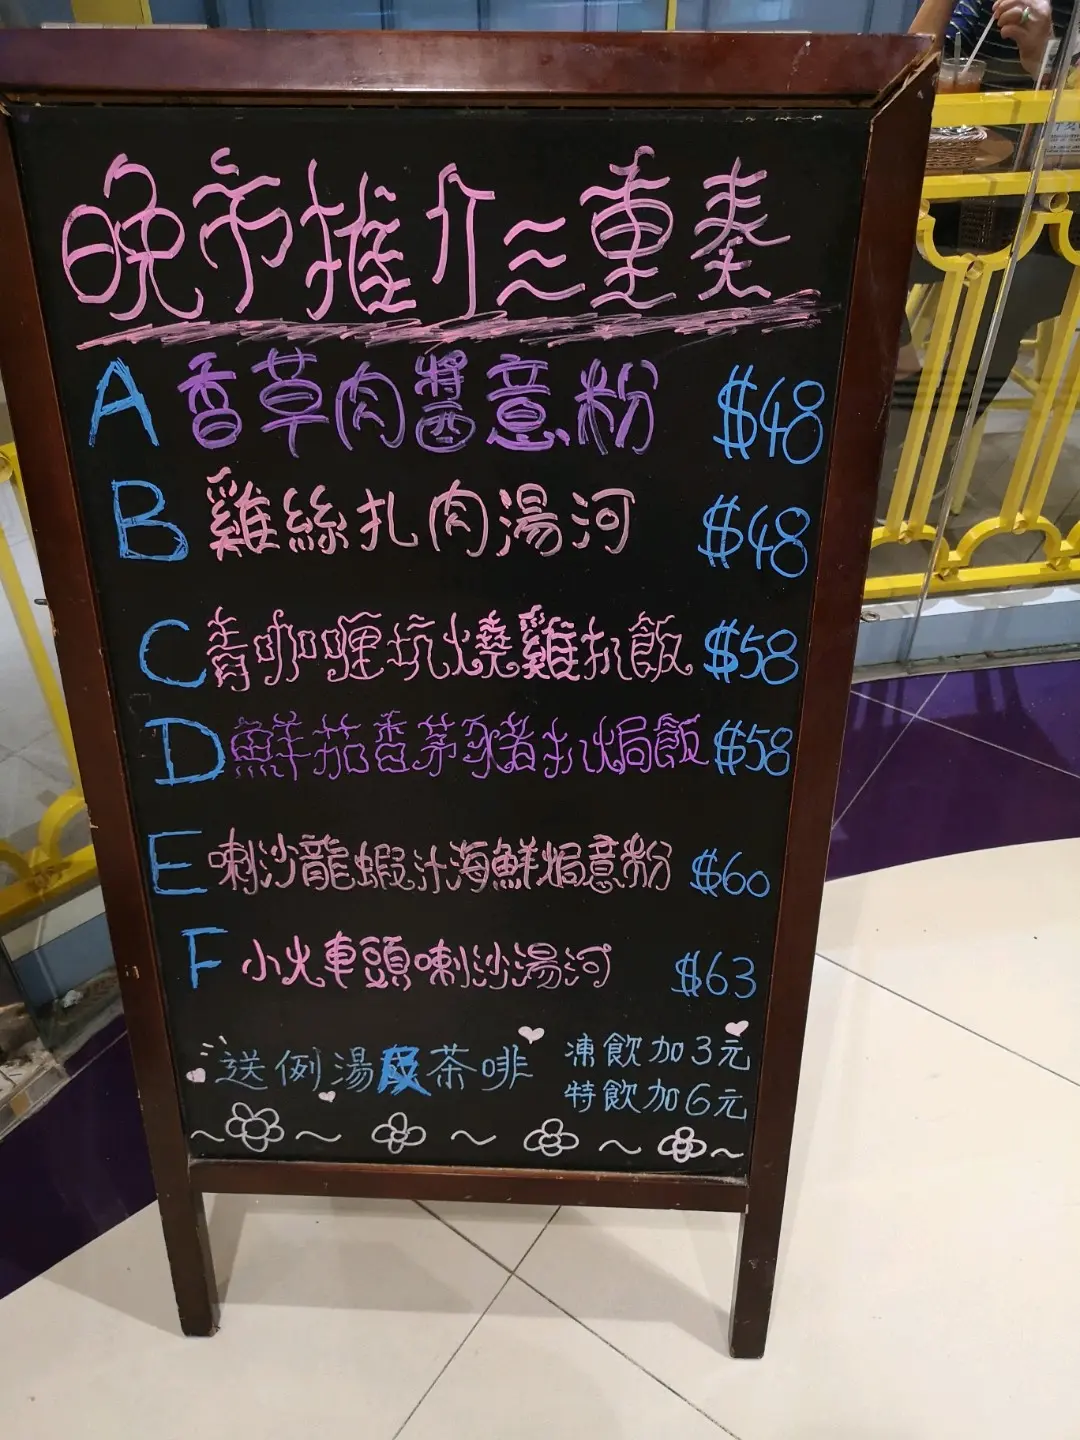 晚市推介三重奏
A 香草肉醬意粉 $48
B 雞絲扎肉湯河 $48
C 青咖喱坑燒雞扒飯 $58
D 鮮茄香茅豬扒焗飯 $58
E 喇沙龍蝦汁海鮮焗意粉 $60
F 小火車頭喇沙湯河 $63
送例湯及茶啡
凍飲加3元
特飲加6元